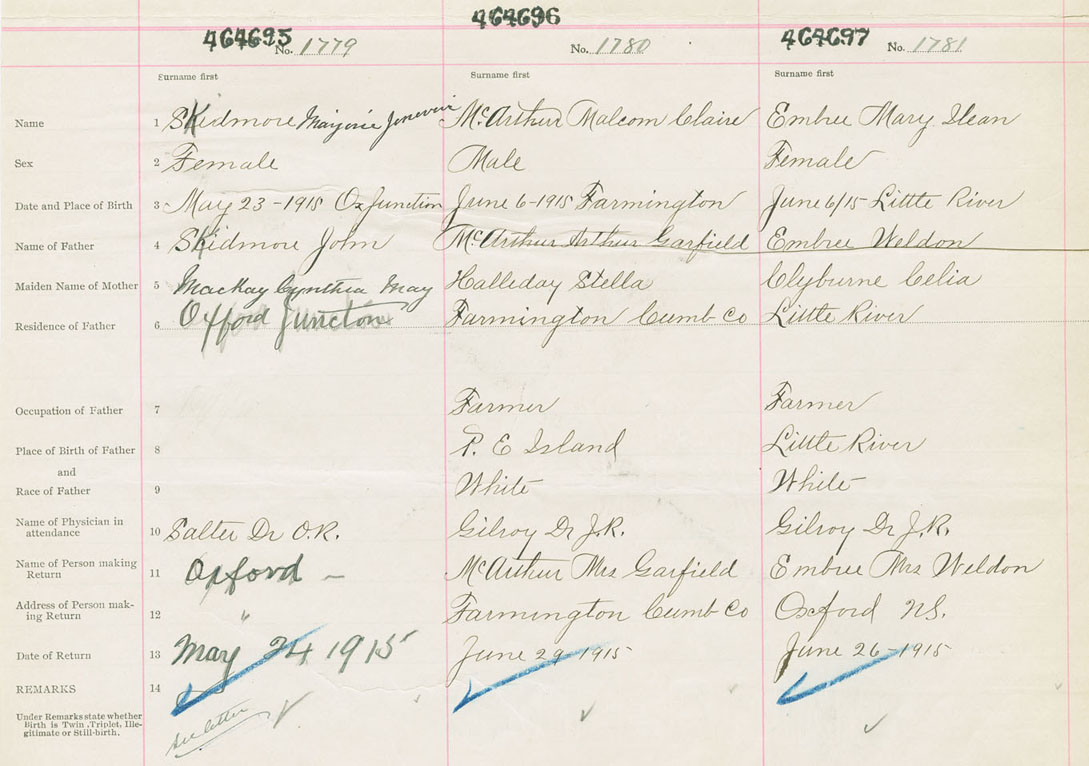 464695 464696 464697
No. 1779 No. 1780 No. 1781
Surname first Surname first Surname first
Name 1 Skidmore Marjorie McArthur Malcom Claire Embree Mary Ilean
Sex 2 Female Male Female
Date and Place of Birth 3 May 23-1915 Ox Junction June 6-1915 Farmington June 6/15 Little River
Name of Father 4 Skidmore John McArthur Arthur Garfield Embree Weldon
Maiden Name of Mother 5 MacKay Cynthia May Halleday Stella Clyburne Celia
Residence of Father 6 Oxford Junction Farmington Cumb Co Little River
Occupation of Father 7 Farmer Farmer
Place of Birth of Father 8 P. E Island Little River
and
Race of Father 9 White White
Name of Physician in attendance 10 Salter Dr O.R. Gilroy Dr J.R. Gilroy Dr J.R.
Name of Person making Return 11 Oxford — McArthur Mrs Garfield Embree Mrs Weldon
Address of Person mak-ing Return 12 " Farmington Cumb Co Oxford N.S.
Date of Return 13 May 24 1915 June 29-1915 June 26-1915
REMARKS 14
see letter
Under Remarks state whether
Birth is Twin, Triplet, Ille-
gitimate or Still-birth.